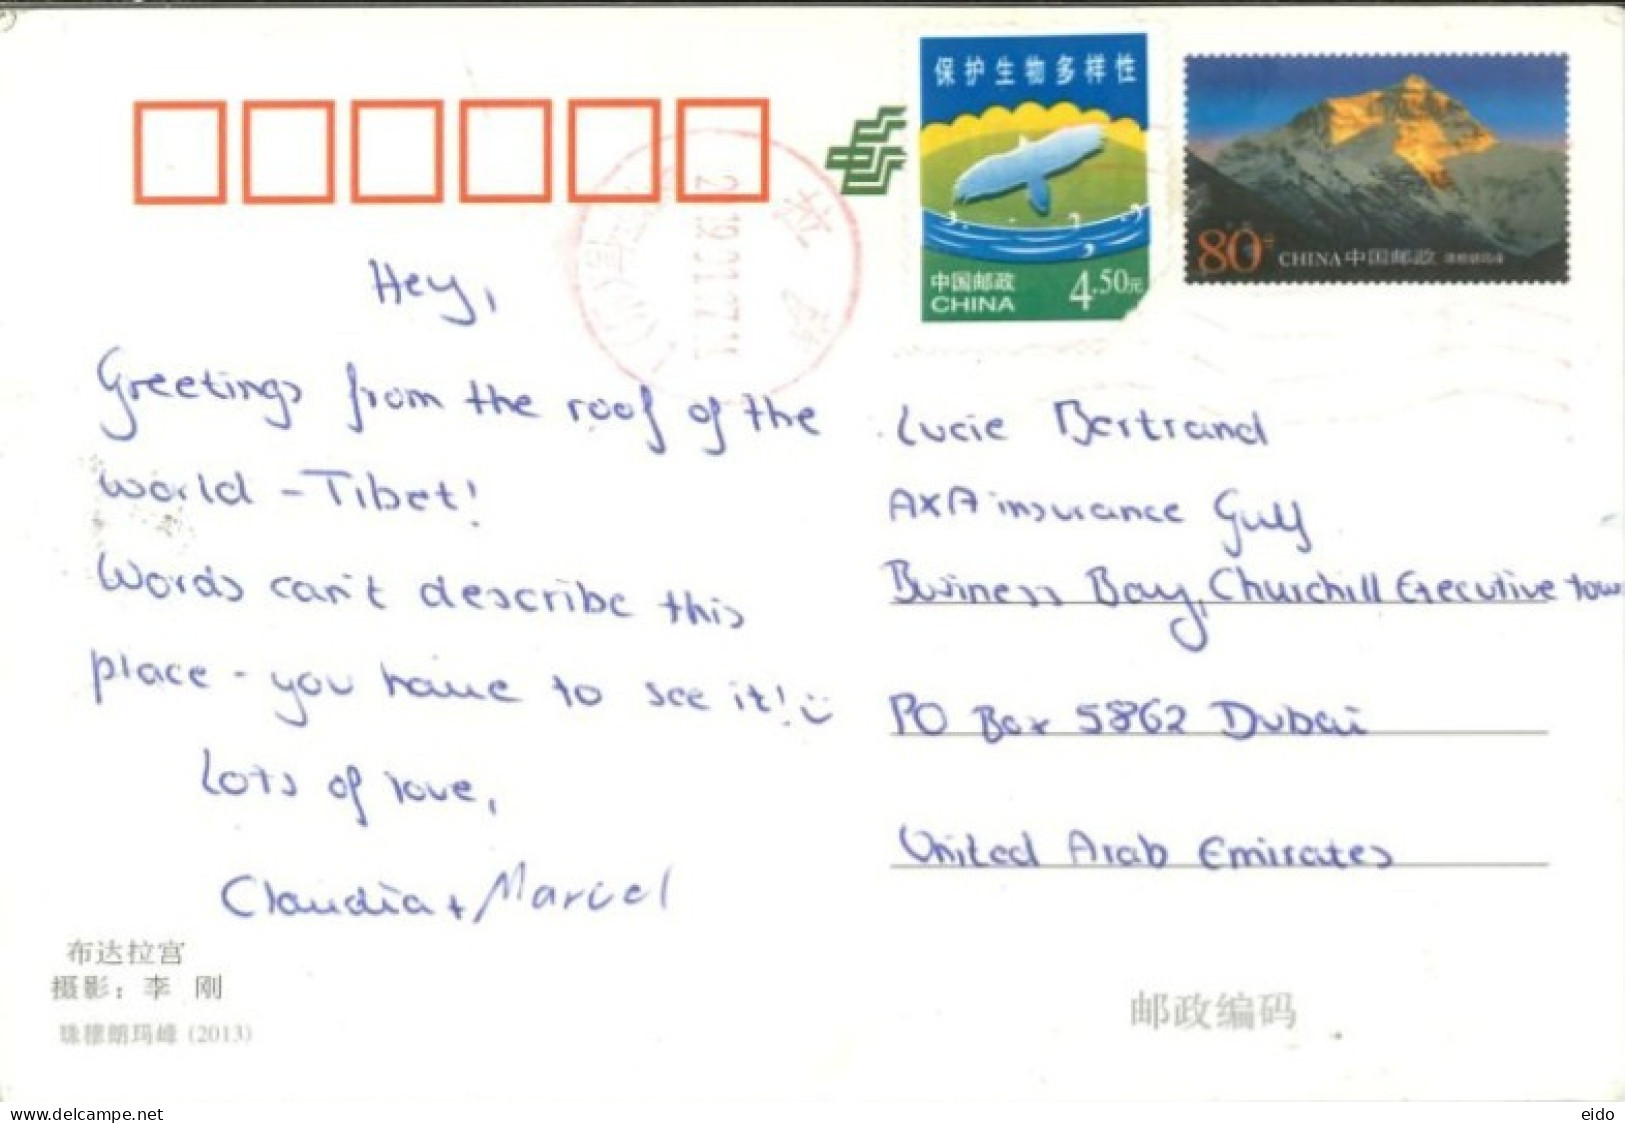 保护生物多样性
中国邮政
CHINA
4.50元
80分 CHINA 中国邮政 珠穆朗玛峰
Hey,
Greetings from the roof of the
world - Tibet!
Words can't describe this
place - you have to see it!
Lots of love,
Claudia + Marcel
Lucie Bertrand
AXA insurance Gulf
Business Bay, Churchill Executive tow
PO Box 5862 Dubai
United Arab Emirates
布达拉宫
摄影：李 刚
珠穆朗玛峰 (2013)
邮政编码
www.delcampe.net
eido